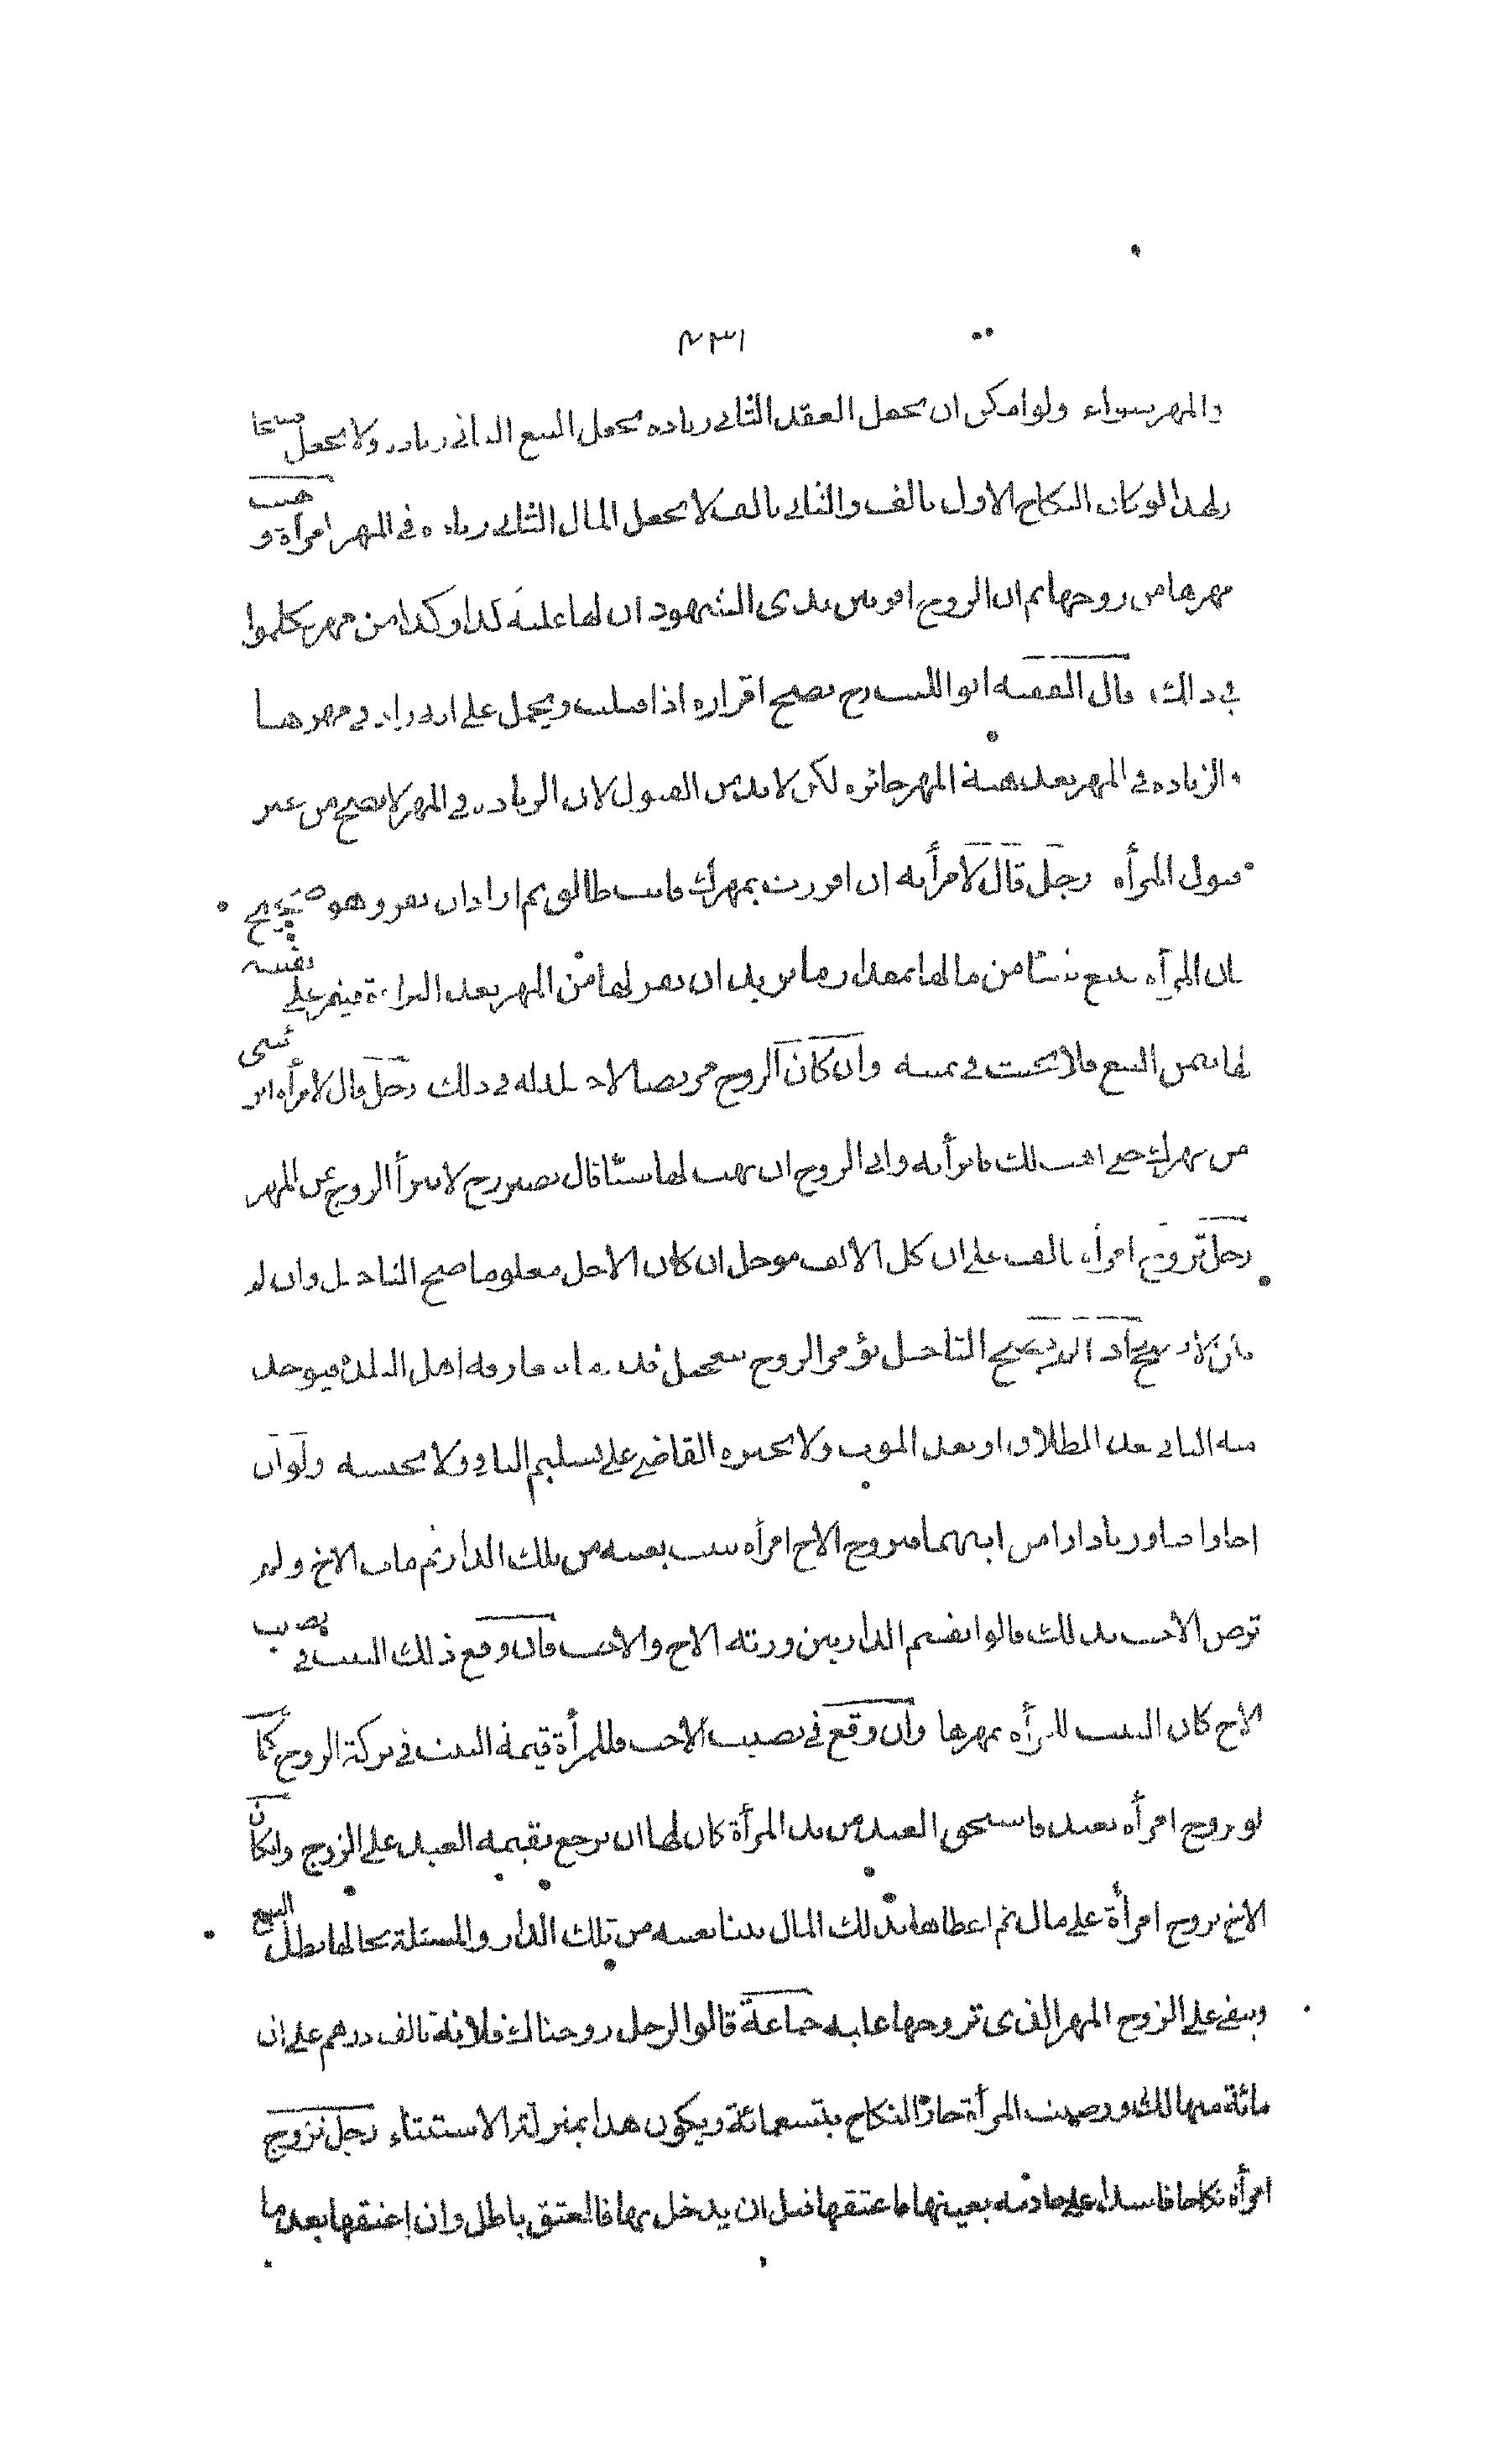 والمهر سواء ولو امكن ان يجعل العقد الثانى زيادة يجعل البيع الثانى زيادة ولا يجعل فسخا
ولهذا لو كان النكاح الاول بالف والثانى بالف لا يجعل المال الثانى زيادة فى المهر امرأة وهبت
مهرها من زوجها ثم ان الزوج اقر بين يدى الشهود ان لها عليه كذا وكذا من مهر تكلموا
فى ذلك قال الفقيه ابو الليث رح يصح اقراره اذا قبلت ويحمل على انه زاد فى مهرها
والزيادة فى المهر بعد هبة المهر جائزة لكن لا بد من القبول لان الزيادة فى المهر لا يصح من غير
قبول المرأة رجل قال لامرأته ان اقررت بمهرك فانت طالق ثم اراد ان يقر وهو صحيح
فان المرأة تبيع شيئا من مالها بمقدار ما يريد ان يقر لها من المهر بعد البراءة فيقر على نفسه
لها بثمن البيع فلا يحنث فى يمينه وان كان الزوج مريضا لا حيلة له فى ذلك رجل قال لامرأة ابرئينى
من مهرك حتى اهب لك فابرأته وابى الزوج ان يهب لها شيئا قال نصير رح لا يبرأ الزوج عن المهر
رجل تزوج امرأة بالف على ان كل الالف مؤجل ان كان الاجل معلوما صح التاجيل وان لم
يكن لا يصح واذا لم يصح التاجيل يؤمر الزوج بتعجيل قدر ما يتعارفه اهل البلدة فيؤخذ
منه الباقى بعد الطلاق او بعد الموت ولا يجبره القاضى على تسليم الباقى ولا يحبسه ولو ان
اخا واختا ورثا دارا من ابيهما فتزوج الاخ امرأة ببيت بعينه من تلك الدار ثم مات الاخ ولم
ترض الاخت بذلك قالوا يقسم الدار بين ورثة الاخ والاخت فان وقع ذلك البيت فى نصيب
الاخ كان البيت للمرأة بمهرها وان وقع فى نصيب الاخت فللمرأة قيمة البيت فى تركة الزوج كما
لو تزوج امرأة بعبد فاستحق العبد من يد المرأة كان لها ان يرجع بقيمة العبد على الزوج ولو كان
الاخ تزوج امرأة على مال ثم اعطاها بذلك المال بيتا بعينه من تلك الدار والمسئلة بحالها بطل البيع
وبقى على الزوج المهر الذى تزوجها عليه جماعة قالوا لرجل زوجناك فلانة بالف درهم على ان
مائة منها لك ورضيت المرأة جاز النكاح بتسعمائة ويكون هذا بمنزلة الاستثناء رجل تزوج
امرأة نكاحا فاسدا على خادمة بعينها فاعتقها قبل ان يدخل بها فالعتق باطل وان اعتقها بعد ما